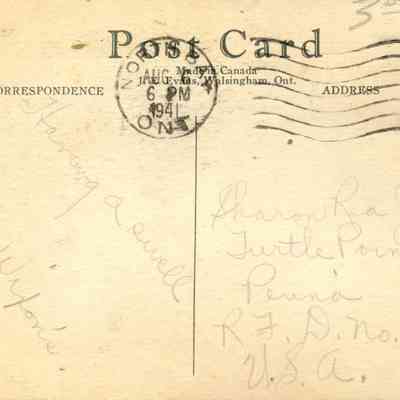 3
Post Card
Made in Canada
J. E. Evans, Walsingham, Ont.
CORRESPONDENCE
ADDRESS
AUG
6 PM
1941
ONT
Having a swell
Sharon Rea
Turtle Poin
Penna
R. F. D. No.
U.S.A.